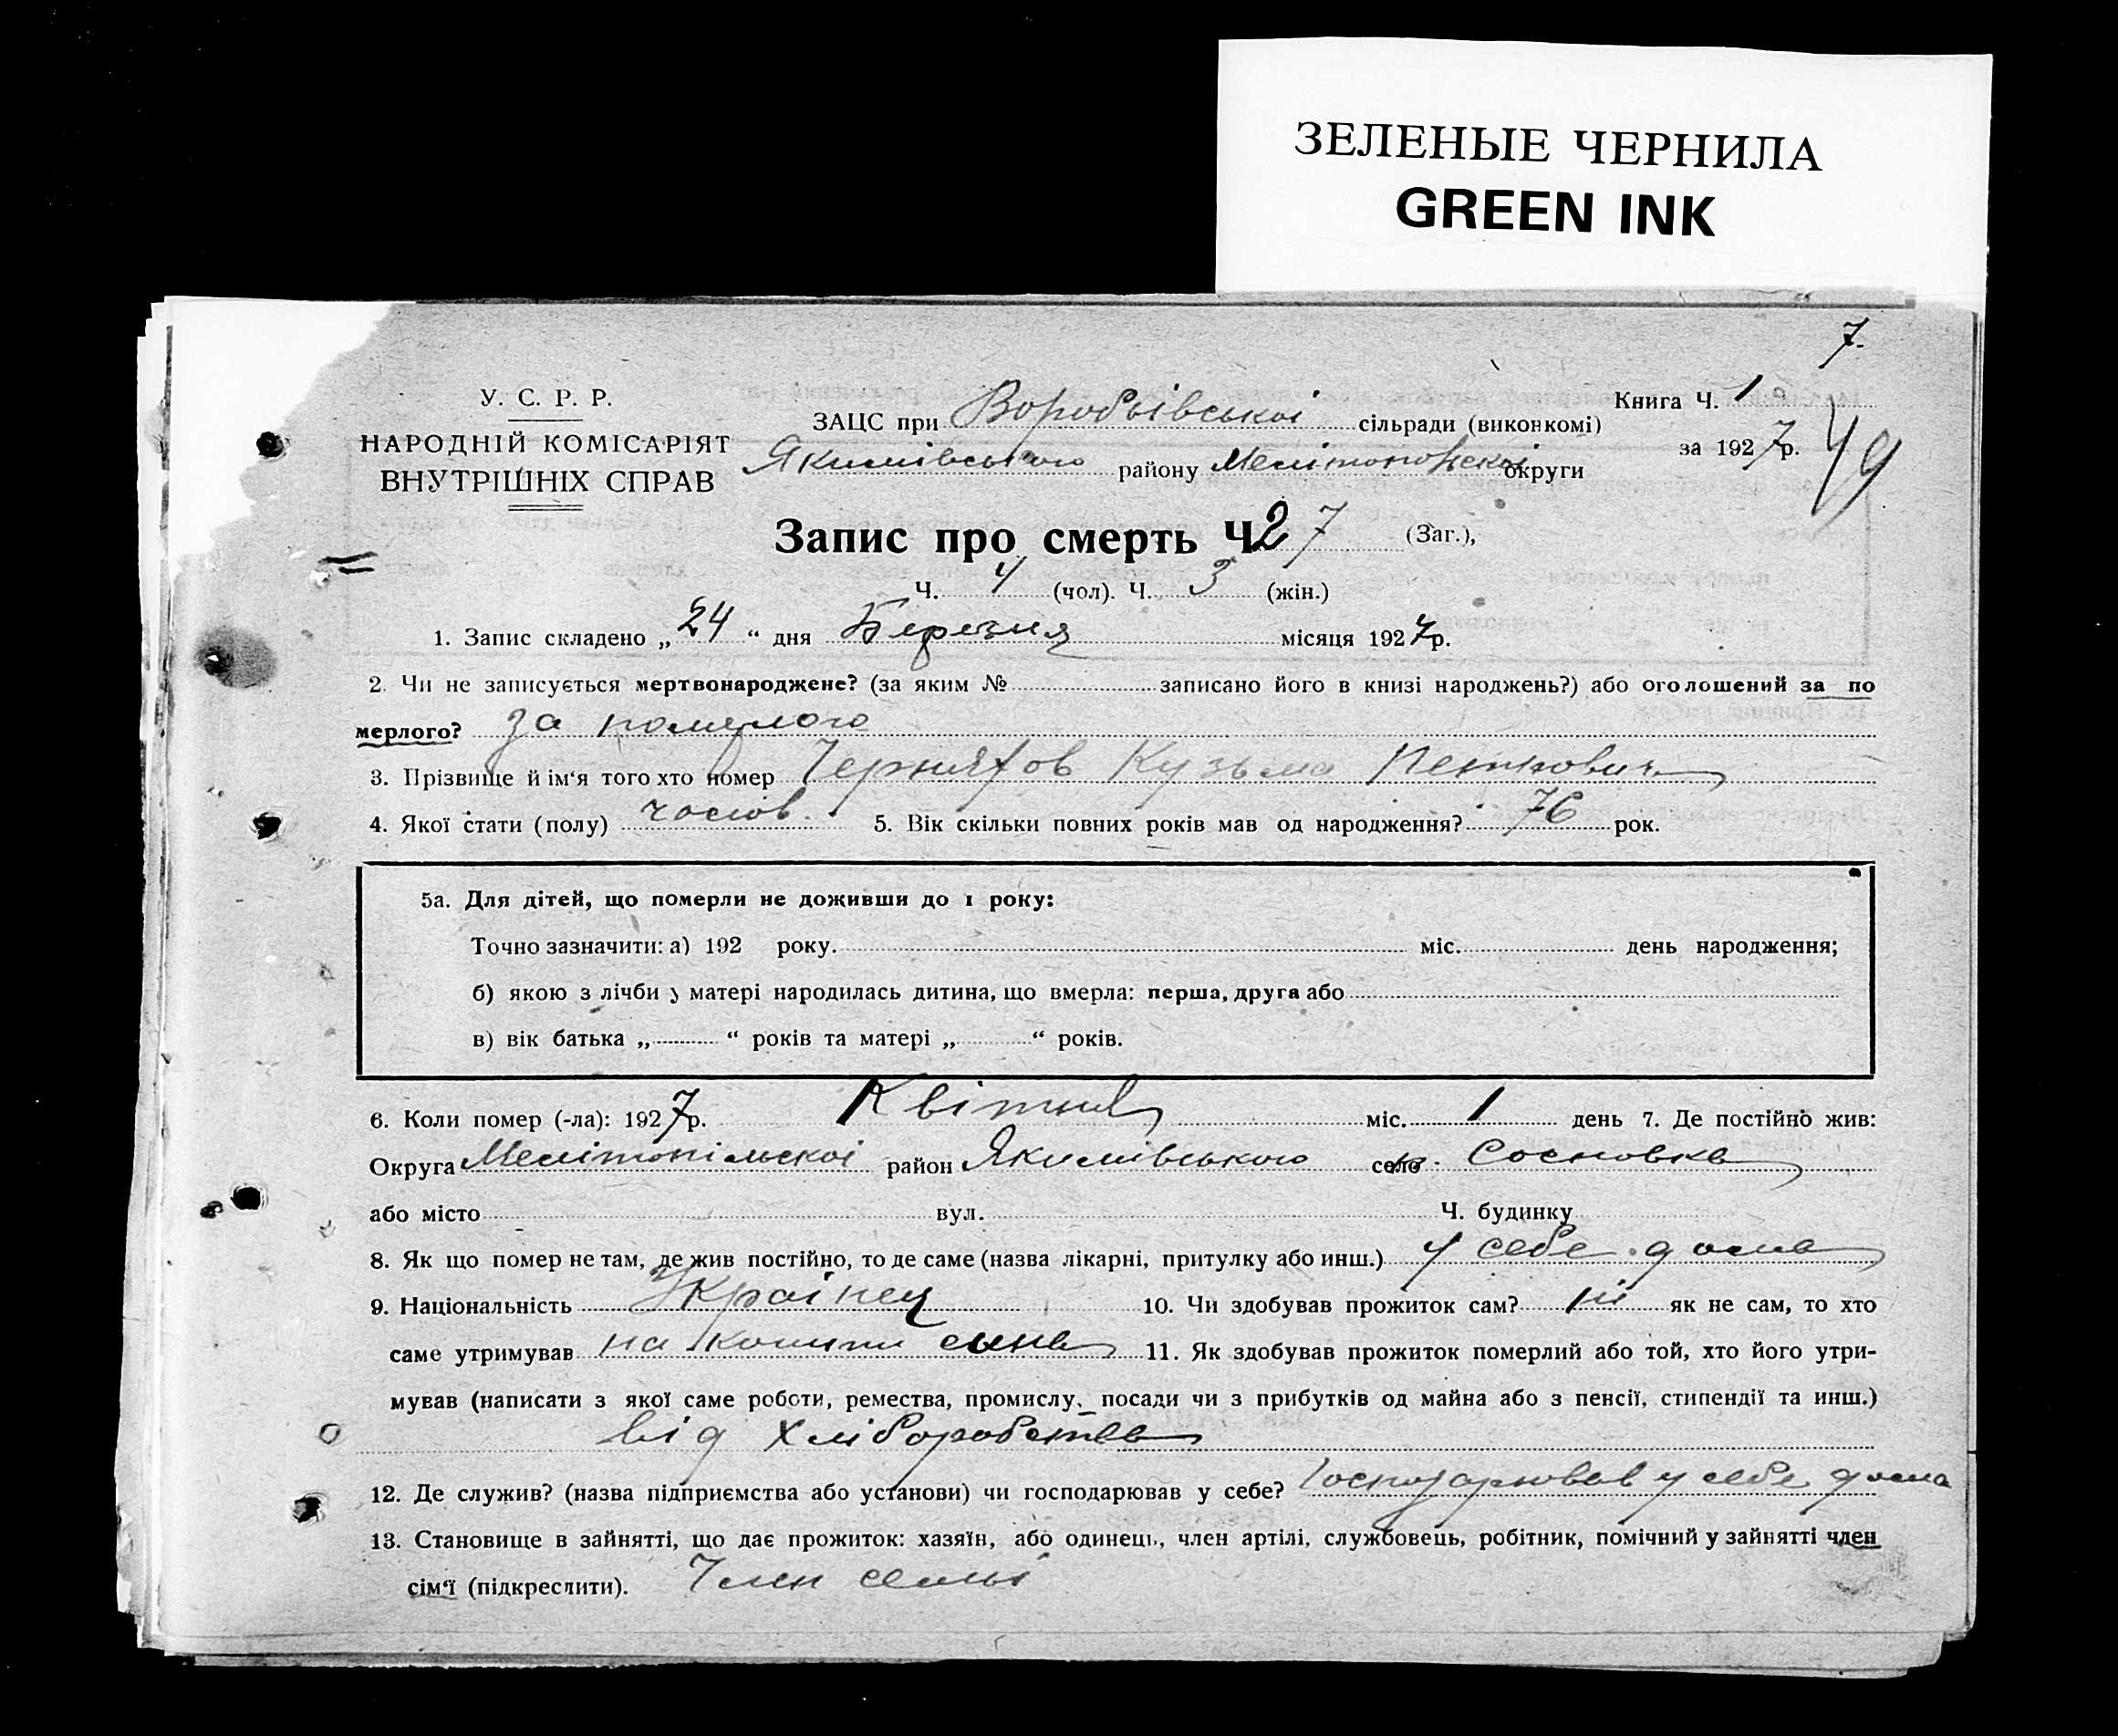 ЗЕЛЕНЫЕ ЧЕРНИЛА
GREEN INK
7.
У. С. Р. Р.
НАРОДНІЙ КОМІСАРІЯТ
ВНУТРІШНІХ СПРАВ
ЗАЦС при Воробьівськоі сільради (виконкомі)
Якимівського району округи
Книга Ч. 1
за 1927р.
49
Запис про смерть Ч 27 (Заг.),
Ч. 4 (чол). Ч. 3 (жін.)
1. Запис складено „24“ дня Березня місяця 1927р.
2. Чи не записується мертвонароджене? (за яким № записано його в книзі народжень?) або оголошений за по
мерлого? за померлого
3. Прізвище й ім‘я того хто помер Кузьма Петрович
4. Якої стати (полу) 5. Вік скільки повних років мав од народження? 76 рок.
5а. Для дітей, що померли не доживши до 1 року:
Точно зазначити: а) 192 року. міс. день народження;
б) якою з лічби у матері народилась дитина, що вмерла: перша, друга або
в) вік батька „ “ років та матері „ “ років.
6. Коли помер (-ла): 1927р. Квітня міс. 1 день 7. Де постійно жив:
Округа Мелітопільскоі район Якимівського село Сосновка
або місто вул. Ч. будинку
8. Як що помер не там, де жив постійно, то де саме (назва лікарні, притулку або инш.) у себе дома
9. Національність Украінец 10. Чи здобував прожиток сам? ні як не сам, то хто
саме утримував на кошти сина 11. Як здобував прожиток померлий або той, хто його утри-
мував (написати з якої саме роботи, ремества, промислу, посади чи з прибутків од майна або з пенсії, стипендії та инш.)
від хліборобства
12. Де служив? (назва підприємства або установи) чи господарював у себе? Господарював у себе дома
13. Становище в зайнятті, що дає прожиток: хазяїн, або одинець, член артілі, службовець, робітник, помічний у зайнятті член
сім‘ї (підкреслити). Член семьі